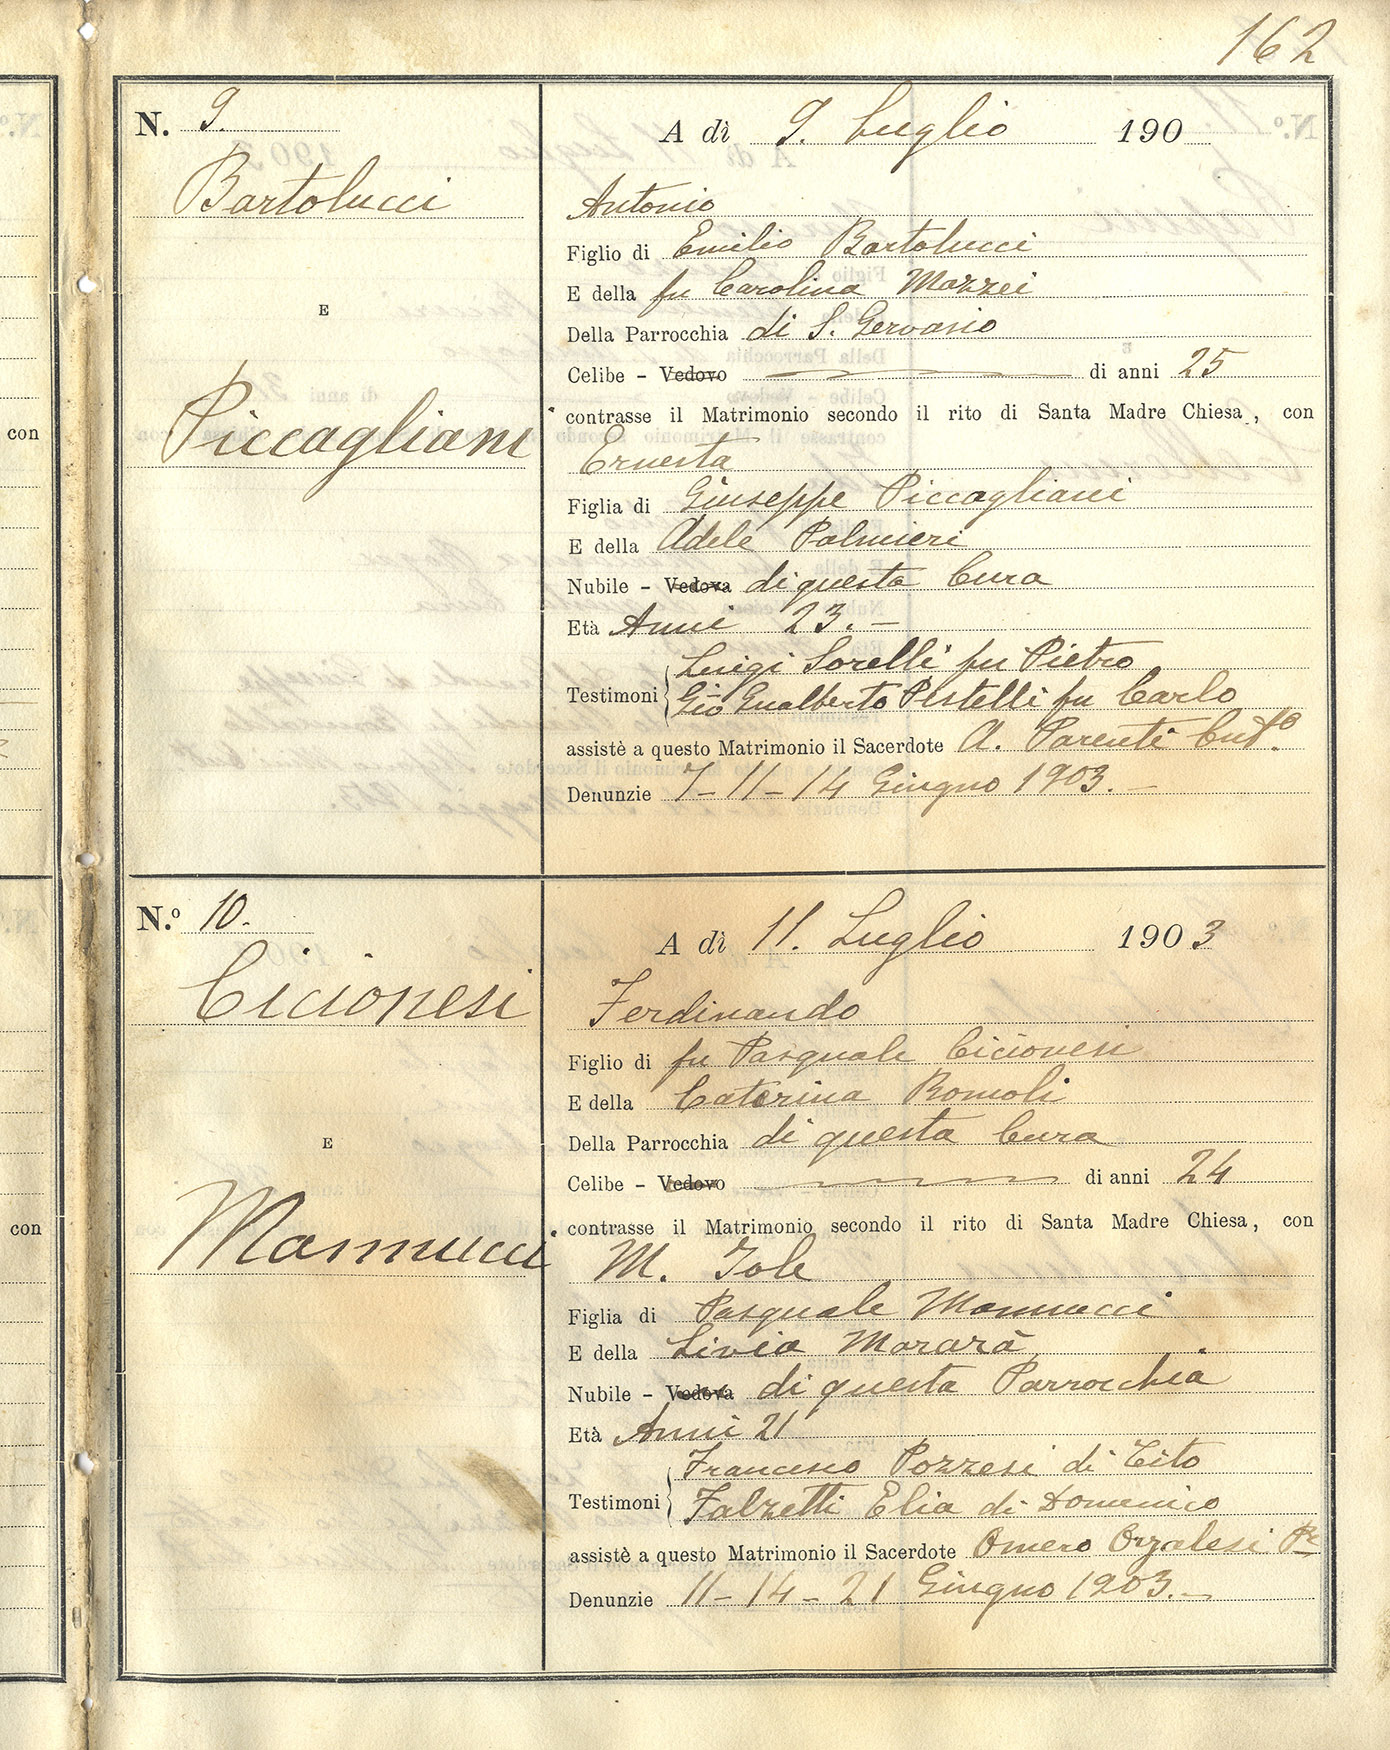 162
N. 9.
Bartolucci
E
Piccagliani
A dì 9. Luglio 190
Antonio
Figlio di Emilio Bartolucci
E della fu Carolina Mazzei
Della Parrocchia di S. Gervasio
Celibe - Vedovo di anni 25
contrasse il Matrimonio secondo il rito di Santa Madre Chiesa, con
Ernesta
Figlia di Giuseppe Piccagliani
E della Adele Palmieri
Nubile - Vedova di questa Cura
Età Anni 23. -
Testimoni Luigi Sorelli fu Pietro
Gio Gualberto Pestelli fu Carlo
assistè a questo Matrimonio il Sacerdote A. Parenti Cuto.
Denunzie 7 - 11 - 14 Giugno 1903. -
N.º 10.
Cicionesi
E
Mannucci
A dì 11. Luglio 1903
Ferdinando
Figlio di fu Pasquale Cicionesi
E della Caterina Romoli
Della Parrocchia di questa Cura
Celibe - Vedovo di anni 24
contrasse il Matrimonio secondo il rito di Santa Madre Chiesa, con
M. Iole
Figlia di Pasquale Mannucci
E della Livia Morarà
Nubile - Vedova di questa Parrocchia
Età Anni 21
Testimoni Francesco Pozzesi di Tito
Falzetti Elia di Domenico
assistè a questo Matrimonio il Sacerdote Omero Orzalesi Pe
Denunzie 11 - 14 - 21 Giugno 1903. -
con
con